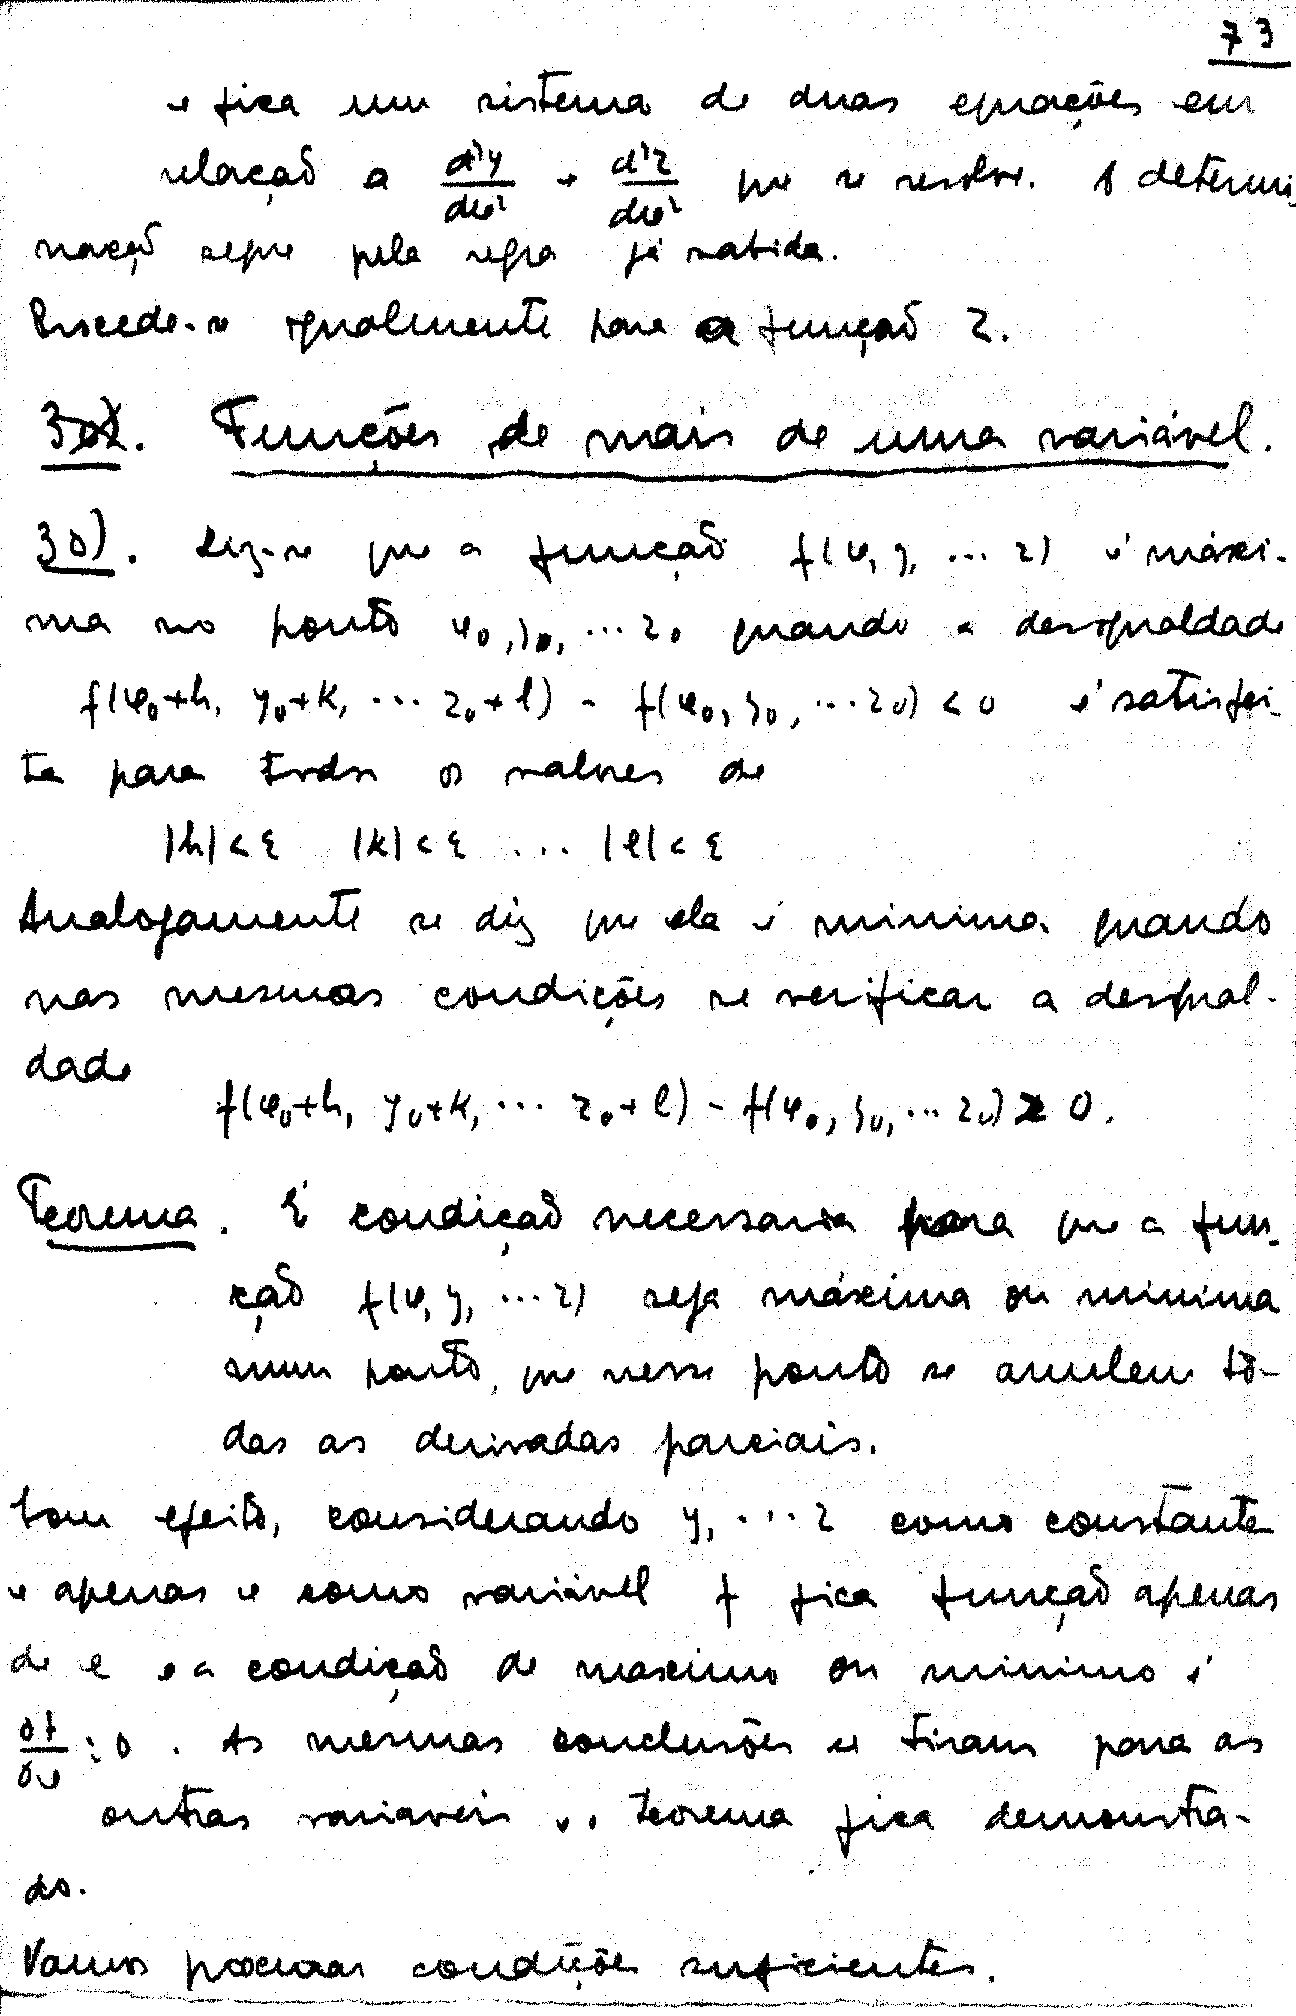 73
e fica um sistema de duas equações em
relação a d²y/dx² e d²z/dx² que se resolve. A determi
nação segue pela regra já sabida.
Procede-se igualmente para a função z.
Funções de mais de uma variável.
30). Diz-se que a função f(x, y, ... z) é máxi-
ma no ponto x₀, y₀, ... z₀ quando a desigualdade
f(x₀+h, y₀+k, ... z₀+l) - f(x₀, y₀, ... z₀) < 0 é satisfei-
ta para todos os valores de
|h| < ε |k| < ε ... |l| < ε
Analogamente se diz que ela é minima quando
nas mesmas condições se verificar a desigual-
dade
f(x₀+h, y₀+k, ... z₀+l) - f(x₀, y₀, ... z₀) > 0.
Teorema. É condição necessaria para que a fun-
ção f(x, y, ... z) seja máxima ou minima
num ponto, que nesse ponto se anulem tô-
das as derivadas parciais.
Com efeito, considerando y, ... z como constante
e apenas x como variável f fica função apenas
de x e a condição de maximo ou minimo é
∂f/∂x = 0. As mesmas conclusões se tiram para as
outras variaveis e o teorema fica demonstra-
do.
Vamos procurar condições suficientes.